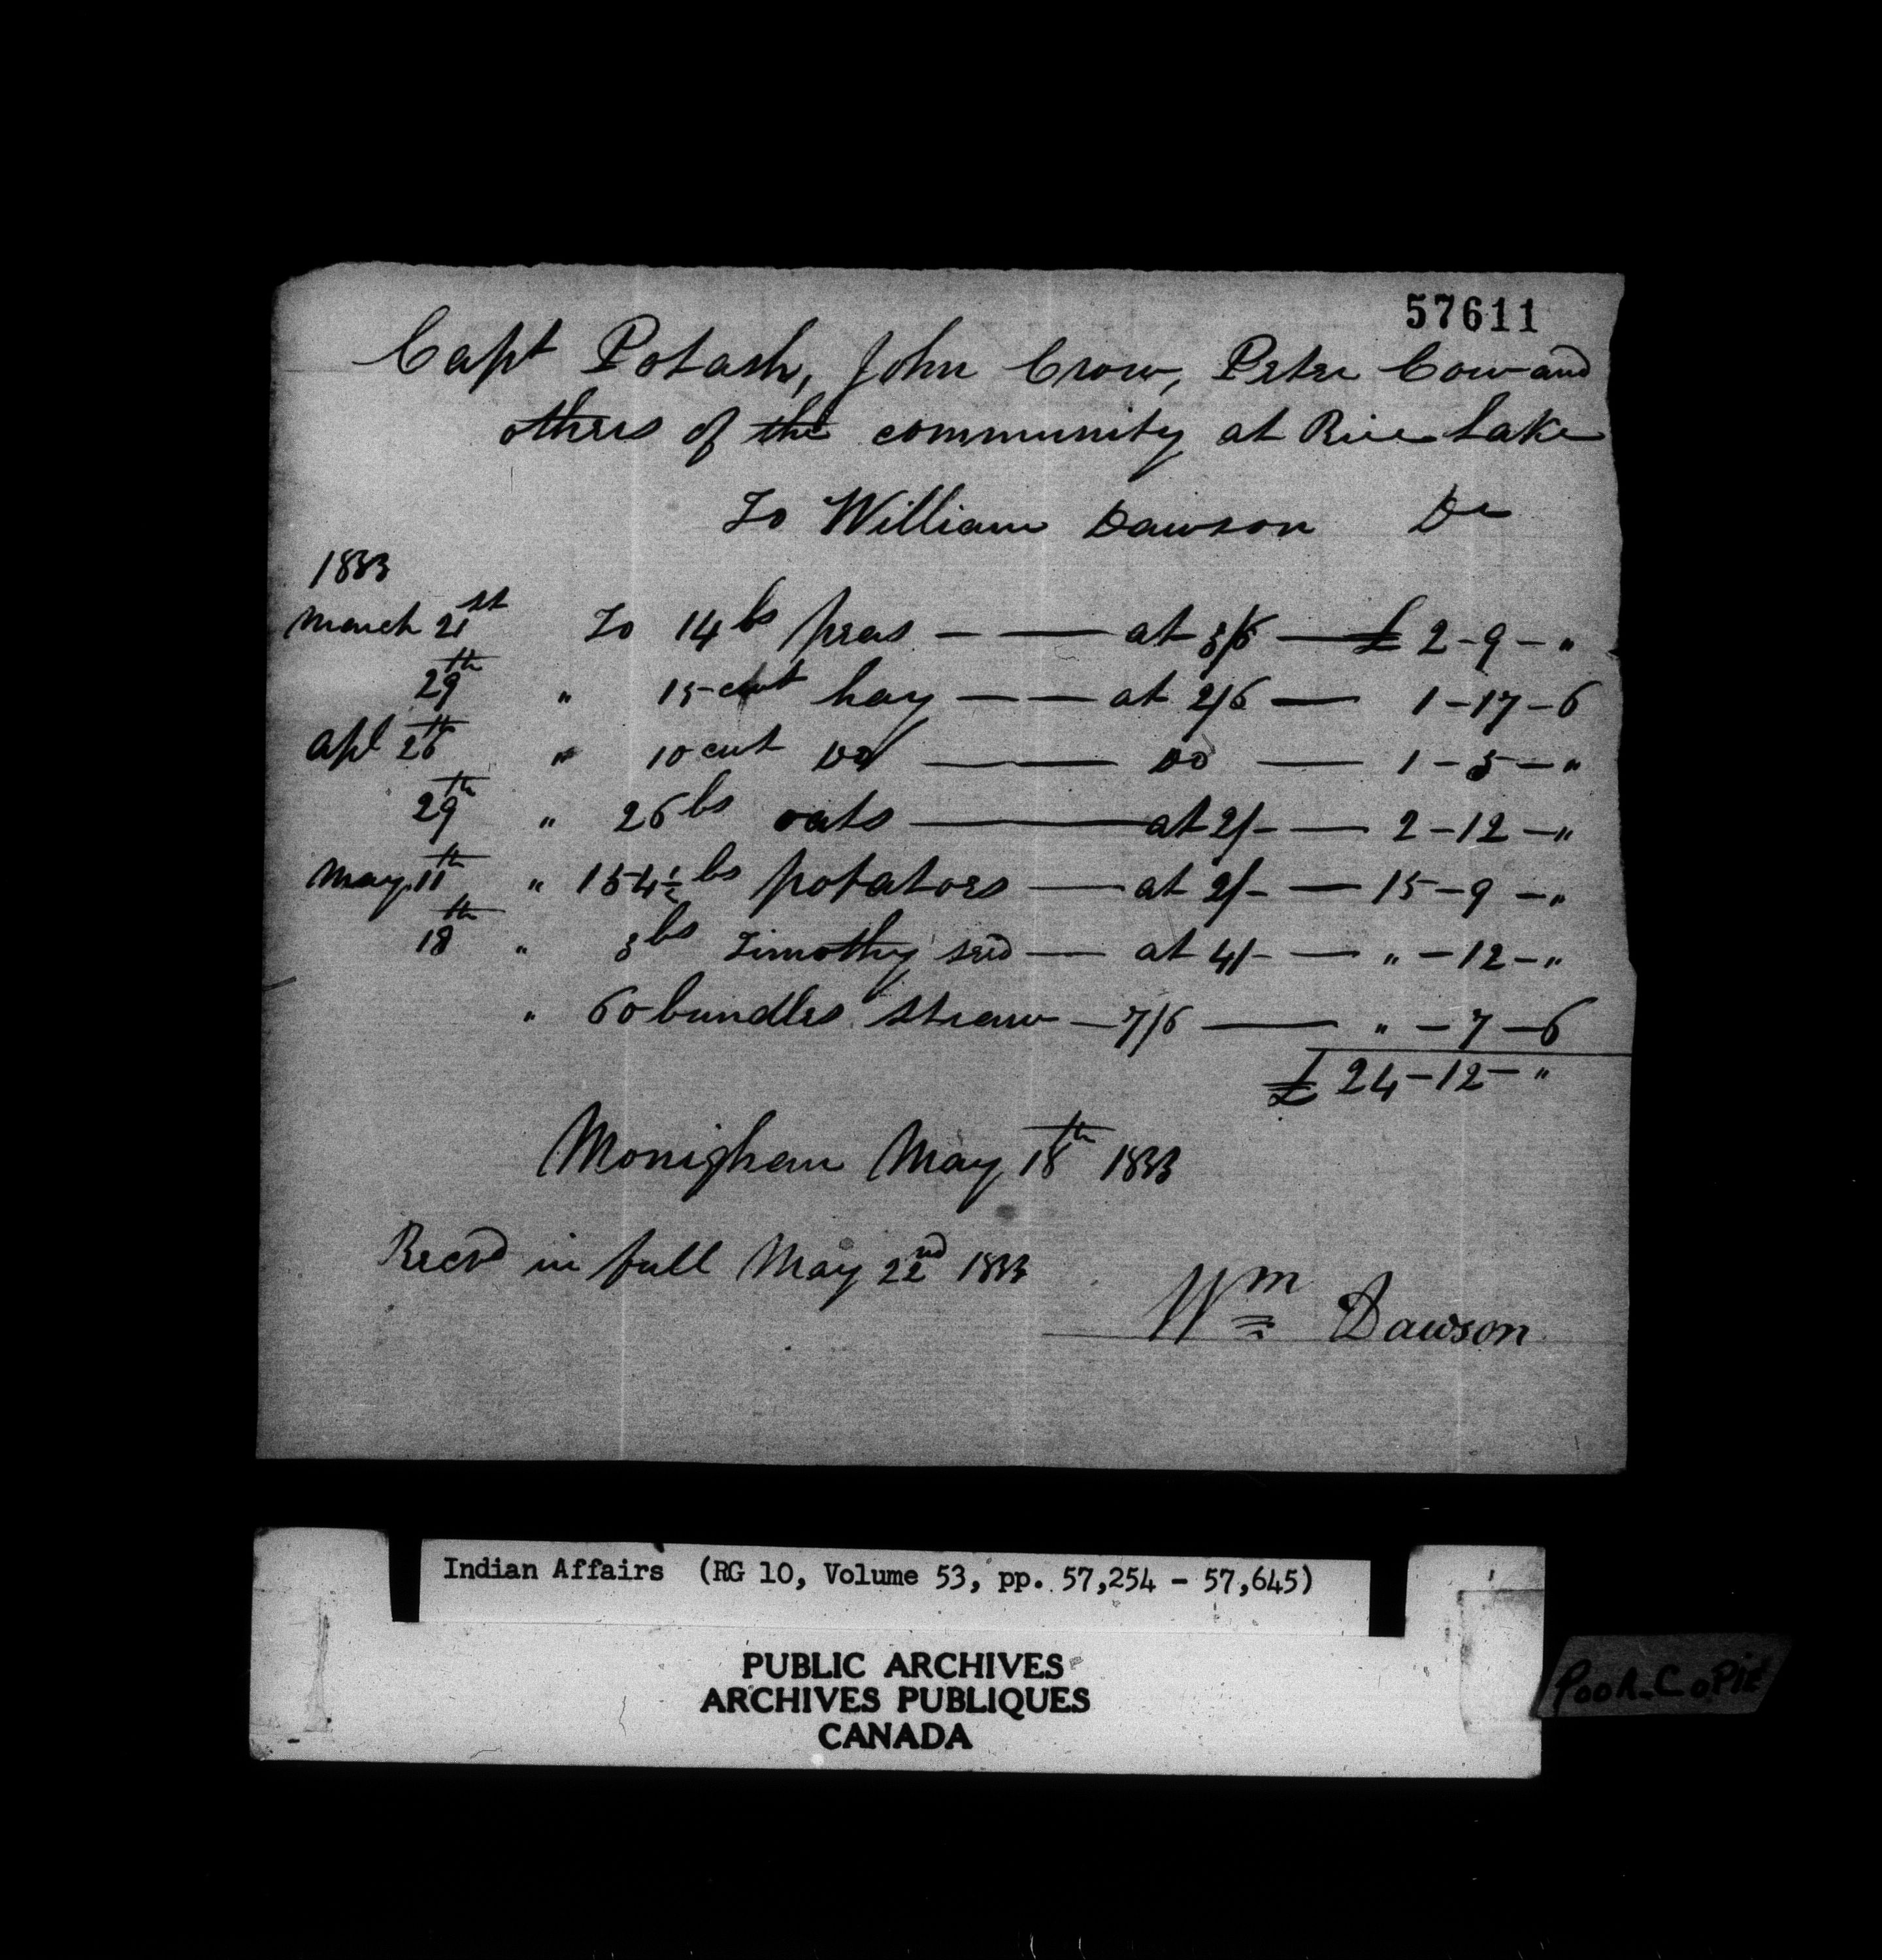 57611
Capt Potash, John Crow, Peter Cow and
others of the community at Rice Lake
To William Dawson Dr
1833
March 21st To 14 bs peas — — at 3/6 — £ 2 - 9 - "
29th " 15 cwt hay — — at 2/6 — 1 - 17 - 6
Apl 26th " 10 cwt Do — Do — 1 - 5 - "
29th " 26 bs oats — at 2/- — 2 - 12 - "
May 11th " 154½ bs potatoes — at 2/- — 15 - 9 - "
18th " 3 bs Timothy seed — at 4/- — " - 12 - "
" 60 bundles straw — 7/6 — " - 7 - 6
£ 24 - 12 - "
Monighan May 18th 1833
Recvd in full May 22nd 1833
Wm Dawson
Indian Affairs (RG 10, Volume 53, pp. 57,254 - 57,645)
PUBLIC ARCHIVES
ARCHIVES PUBLIQUES
CANADA
POOR COPIE